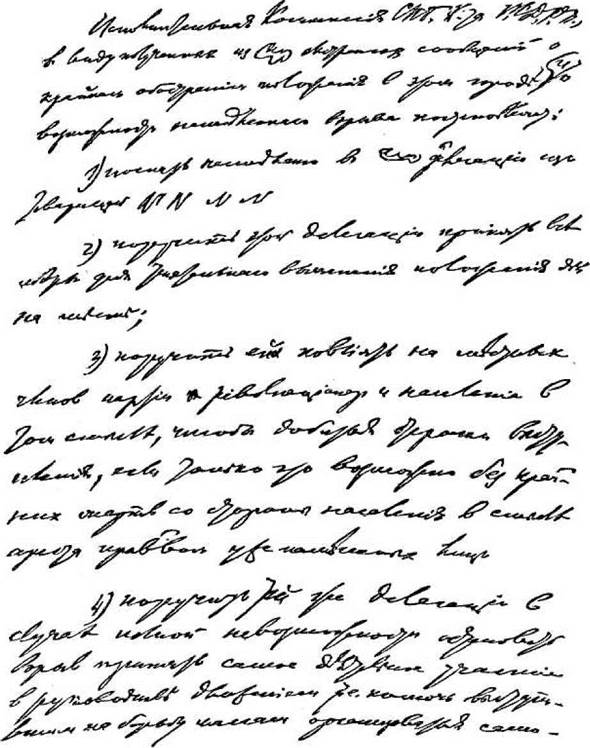 Исполнительная Комиссия СПб. К-та РСДРП,
в виду полученных из экстренных сообщений о
крайнем обострении положения в этом городе и о
возможности немедленного взрыва постановляет:
1) послать немедленно в делегацию из
товарищей NN N N
2) поручить этой делегации принять все
меры для экстренного выяснения положения дел
на месте;
3) поручить ей повлиять на местных
членов партии и революционеров и население в
том смысле, чтобы добиться отсрочки высту-
пления, если только это возможно без край-
них жертв со стороны населения в смысле
ареста правит-вом уже намеченных лиц
4) поручить той же делегации в
случае полной невозможности остановить
взрыв принять самое деятельное участие
в руководстве движением т.е. помочь выступи-
вшим на борьбу массам организоваться само-